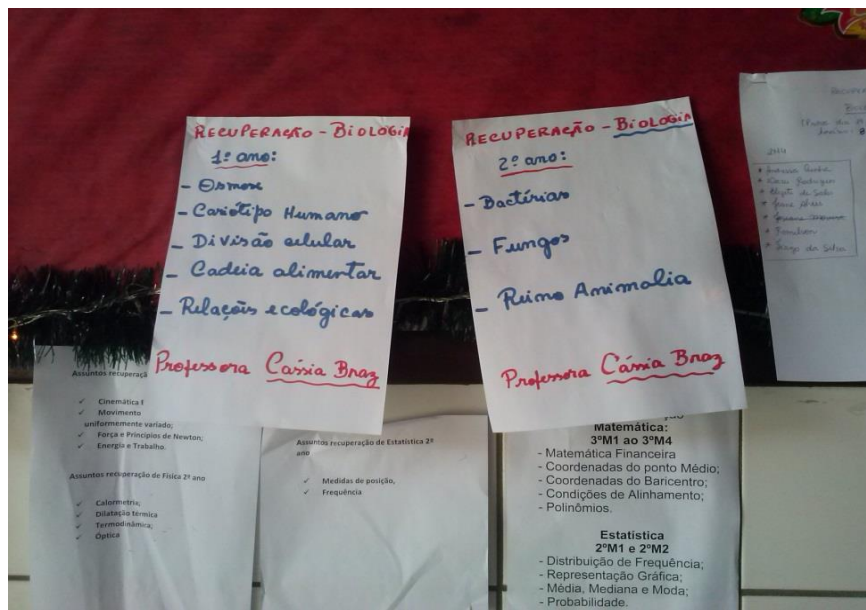 RECUPERAÇÃO - BIOLOGIA
1º ano:
- Osmose
- Cariótipo Humano
- Divisão celular
- Cadeia alimentar
- Relações ecológicas
Professora Cássia Braz
RECUPERAÇÃO - BIOLOGIA
2º ano:
- Bactérias
- Fungos
- Reino Animalia
Professora Cássia Braz
da Silva
Assuntos recuperaçã
✓ Cinemática I
✓ Movimento
uniformemente variado;
✓ Força e Princípios de Newton;
✓ Energia e Trabalho.
Assuntos recuperação de Física 2º ano
✓ Calormetria;
✓ Dilatação térmica
✓ Termodinâmica;
✓ Óptica
Assuntos recuperação de Estatística 2º
ano
✓ Medidas de posição,
✓ Frequência
Matemática:
3ºM1 ao 3ºM4
- Matemática Financeira
- Coordenadas do ponto Médio;
- Coordenadas do Baricentro;
- Condições de Alinhamento;
- Polinômios.
Estatística
2ºM1 e 2ºM2
- Distribuição de Frequência;
- Representação Gráfica;
- Média, Mediana e Moda;
- Probabilidade.